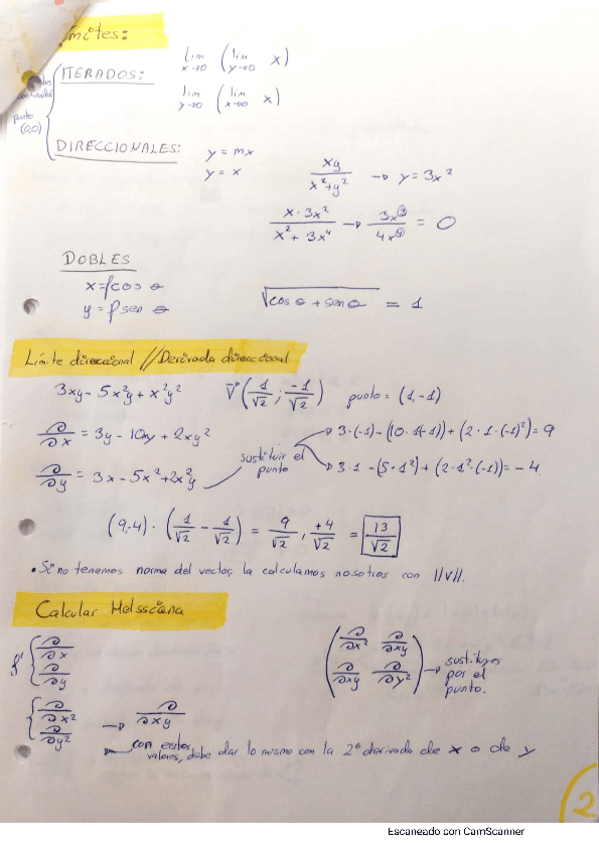 ímites:
ITERADOS: lim x→0 (lim y→0 x)
lim y→0 (lim x→0 x)
punto
(0,0)
DIRECCIONALES: y = mx
y = x
xy / x²+y² → y = 3x²
x · 3x² / x² + 3x⁴ → 3x³ / 4x⁴ = 0
DOBLES
x = ρ cos θ
y = ρ sen θ
√cos θ + sen θ = 1
Límite direccional // Derivada direccional
3xy - 5x²y + x²y² V (1/√2 ; -1/√2) punto = (1,-1)
∂/∂x = 3y - 10xy + 2xy²
sustituir el
punto
3·(-1) - (10·1·(-1)) + (2·1·(-1)²) = 9
∂/∂y = 3x - 5x² + 2x²y
3·1 - (5·1²) + (2·1²·(-1)) = -4
(9,-4) · (1/√2 - 1/√2) = 9/√2 , +4/√2 = 13/√2
• Si no tenemos norma del vector, la calculamos nosotros con ||v||.
Calcular Helssciana
f' { ∂/∂x
∂/∂y
{ ∂/∂x²
∂/∂y²
→ ∂/∂xy
( ∂/∂x² ∂/∂xy
∂/∂xy ∂/∂y² )
→ sustituyo
por el
punto.
con estos
valores, debe dar lo mismo con la 2ª derivada de x o de y
2
Escaneado con CamScanner